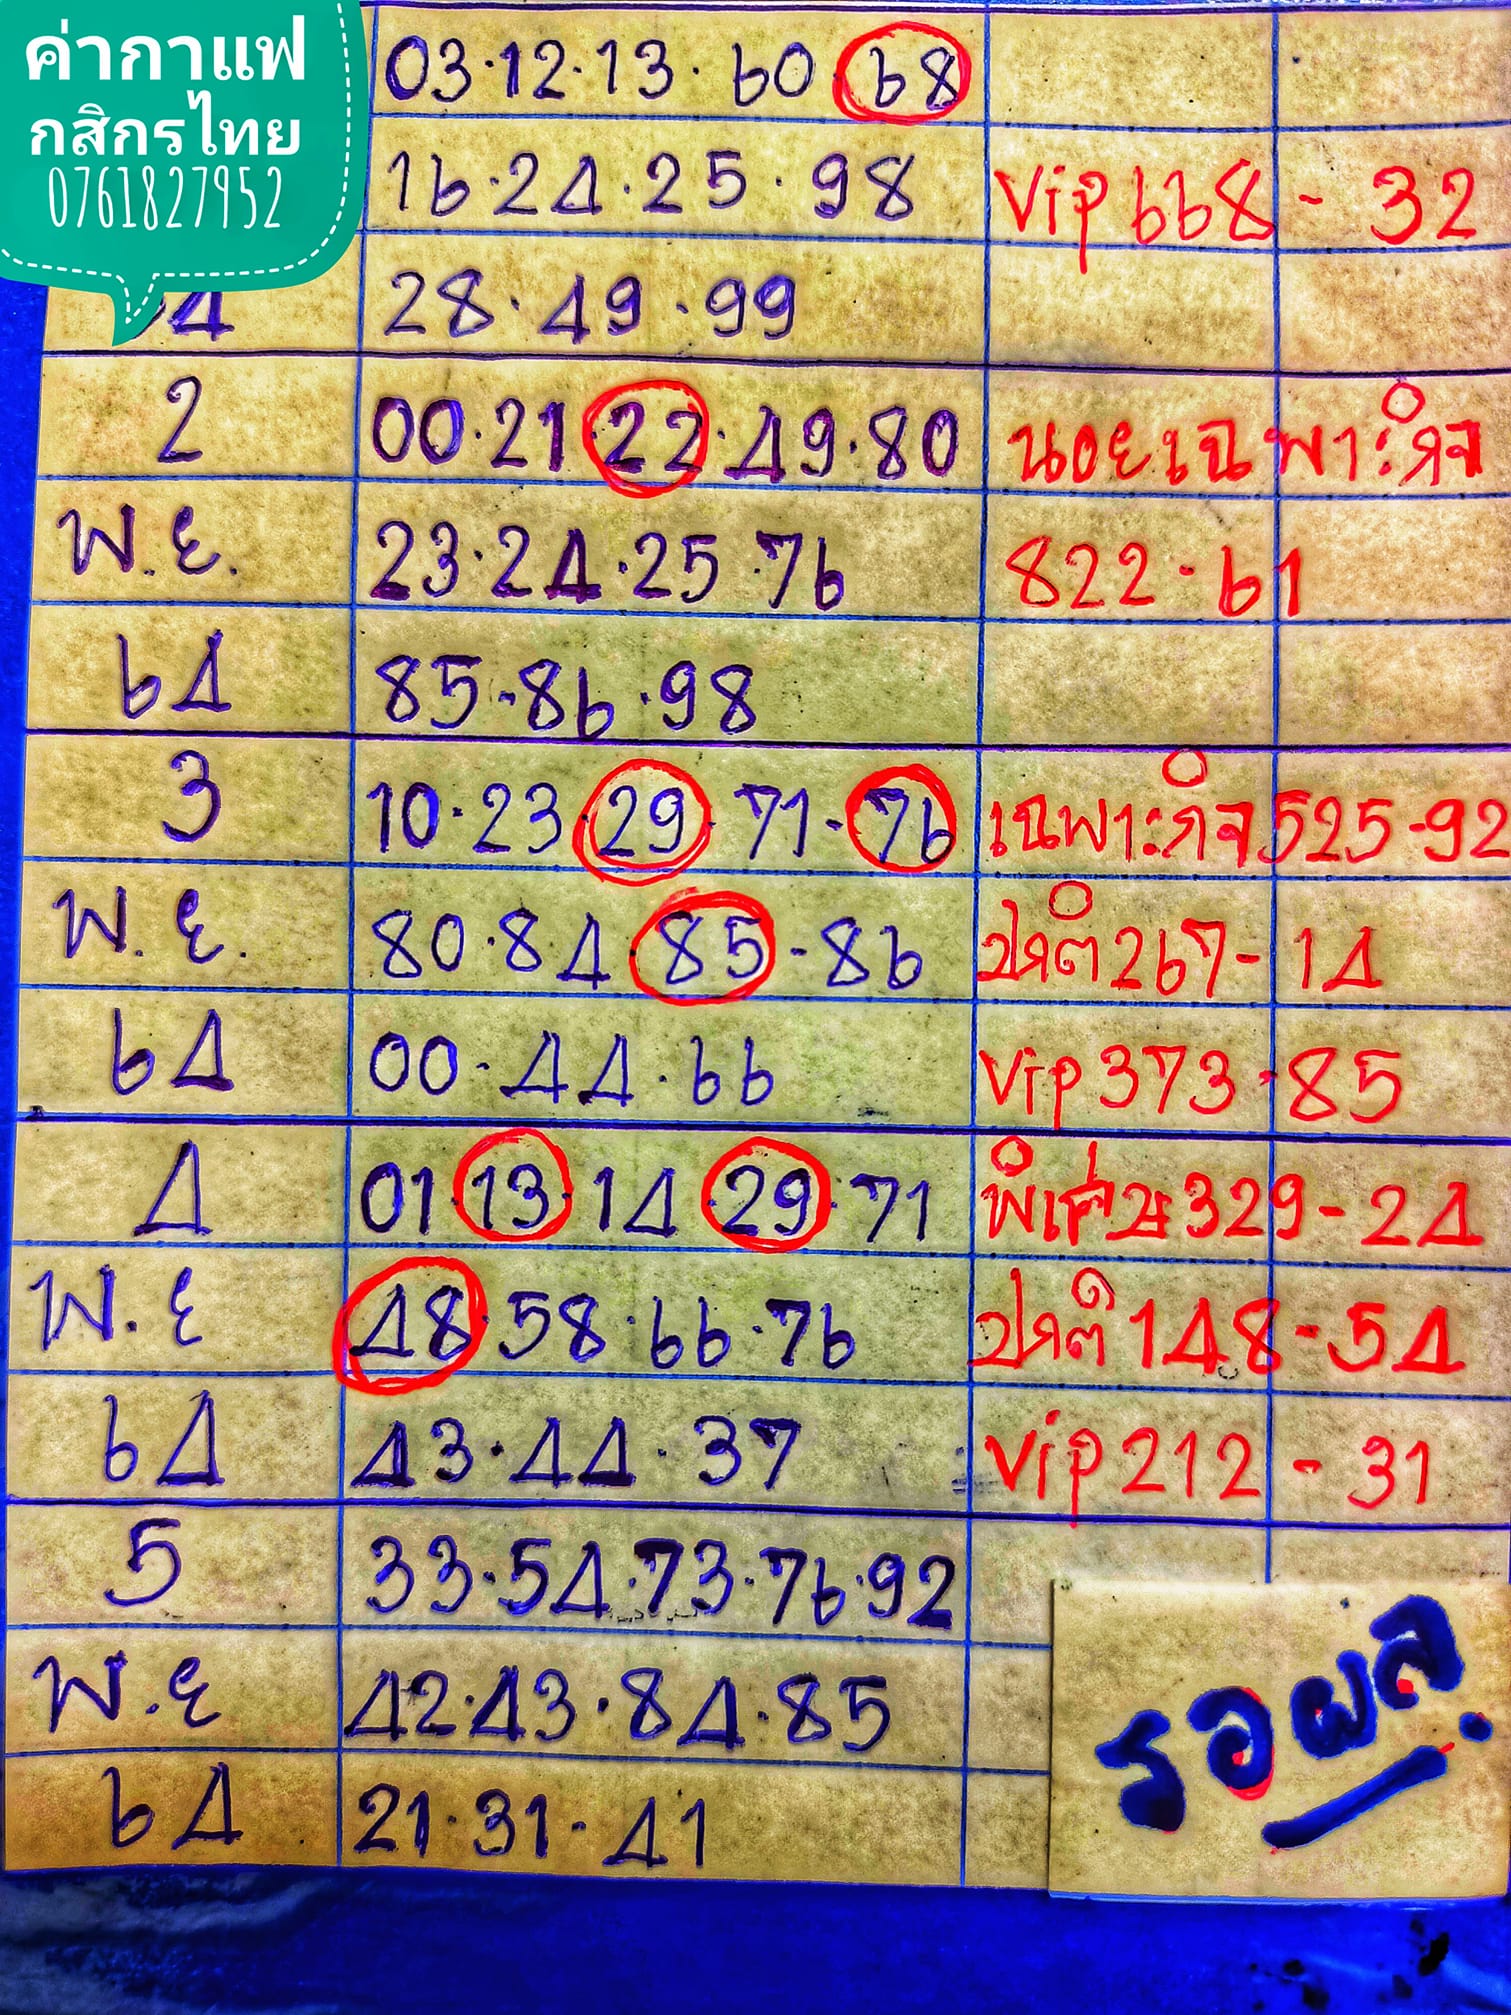 ค่ากาแฟ
กสิกรไทย
0761827952
03·12·13·60·68
16·24·25·98 Vip 668 - 32
4 28·49·99
2 00·21·22·49·80
พ.ย. 23·24·25·76 822·61
64 85·86·98
3 10·23·29·71·76 525·92
พ.ย. 80·84·85·86 267-14
64 00·44·66 Vip 373·85
4 01·13·14·29·71 329-24
พ.ย 48·58·66·76 148-54
64 43·44·37 Vip 212-31
5 33·54·73·76·92
พ.ย 42·43·84·85
64 21·31·41
รอผล